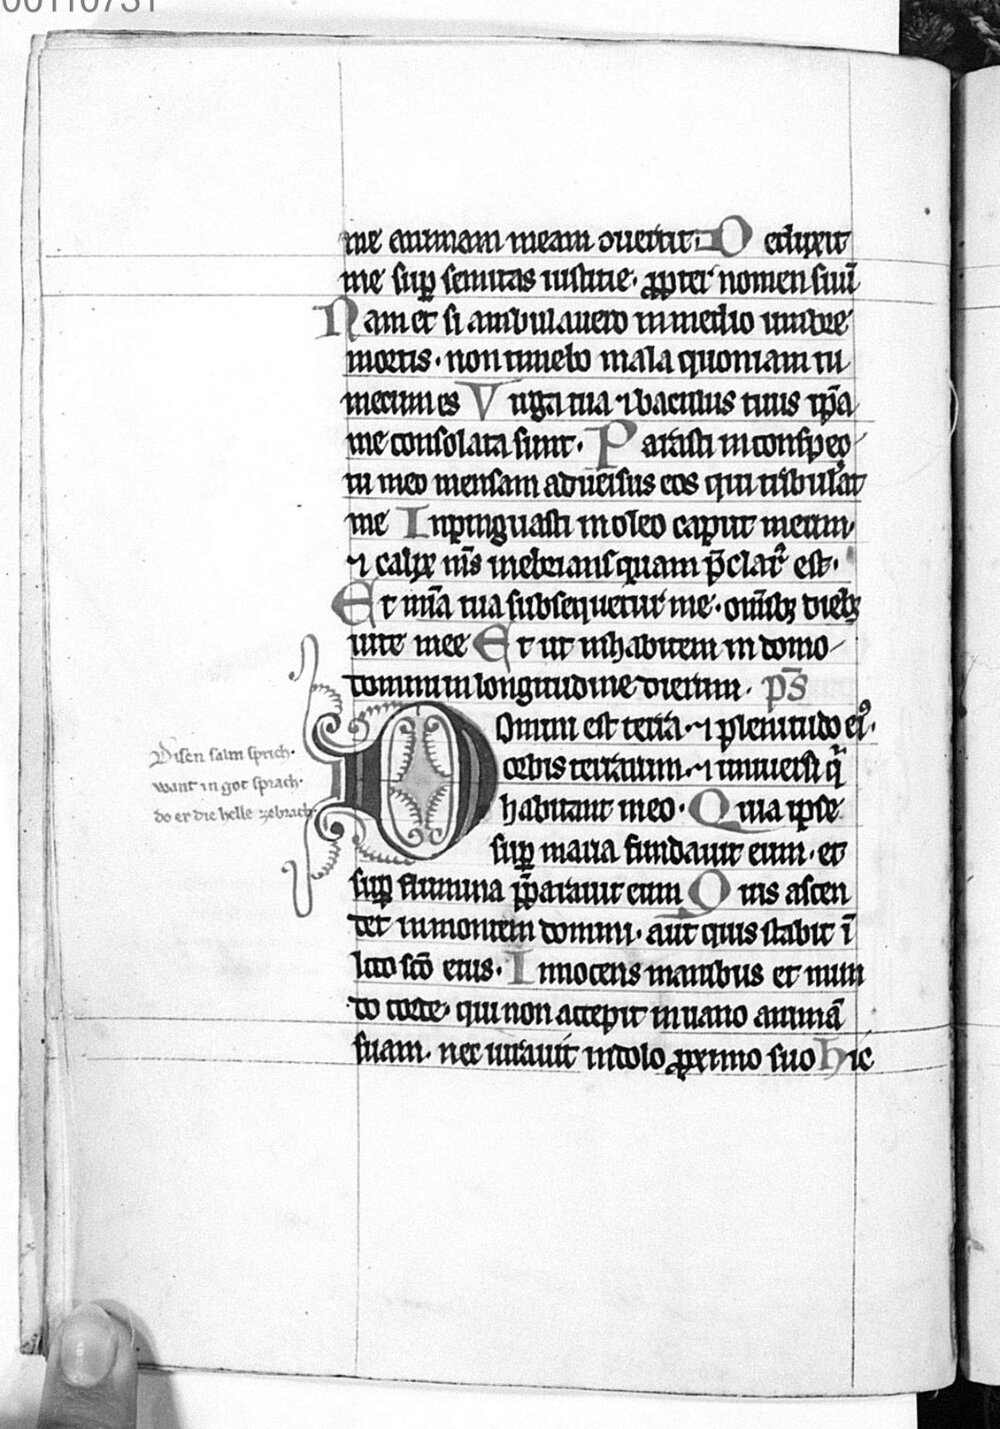 00110731
me animam meam ɔuertit· Deduxit
me sup̲ semitas iustitie· ꝓpter nomen suū
Nam et si ambulauero in medio umbre
mortis· non timebo mala quoniam tu
mecum es Virga tua ⁊ baculus tuus ip̄a
me consolata sunt· Parasti in conspec
tu meo mensam aduersus eos qui tribulāt
me Inpinguasti in oleo caput meum·
⁊ calix m̄s inebrians quam p̄clarꝰ est·
Et mīa tua subsequetur me· omībꝫ diebꝫ
uite mee Et ut inhabitem in domo
domini in longitudine dierum· p̄s
Domini est terra· ⁊ plenitudo eiꝰ·
orbis terrarum· ⁊ uniuersi q̄
habitant in eo· Quia ipse
sup̲ maria fundauit eum· et
sup̲ flumina p̄parauit eum Quis ascen
det in montem domini· aut quis stabit ī
loco sc̄o eius· Innocens manibus et mun
do corde· qui non accepit in uano animā
suam· nec iurauit in dolo ꝓximo suo hic
Disen salm sprich·
want in got sprach·
do er die helle zebrach·